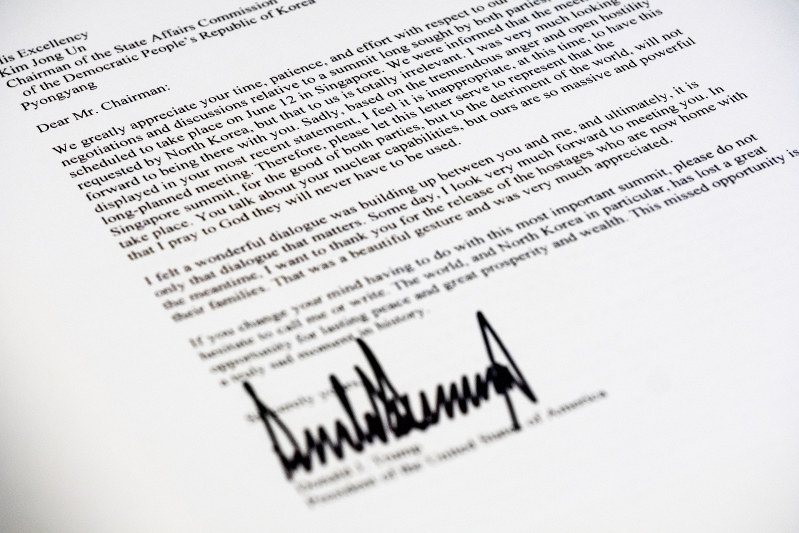 is Excellency
Kim Jong Un
Chairman of the State Affairs Commission
of the Democratic People's Republic of Korea
Pyongyang
Dear Mr. Chairman:
We greatly appreciate your time, patience, and effort with respect to our
negotiations and discussions relative to a summit long sought by both parties,
scheduled to take place on June 12 in Singapore. We were informed that the
requested by North Korea, but that to us is totally irrelevant. I was very much looking
forward to being there with you. Sadly, based on the tremendous anger and open hostility
displayed in your most recent statement, I feel it is inappropriate, at this time, to have this
long-planned meeting. Therefore, please let this letter serve to represent that the
Singapore summit, for the good of both parties, but to the detriment of the world, will not
take place. You talk about your nuclear capabilities, but ours are so massive and powerful
that I pray to God they will never have to be used.
I felt a wonderful dialogue was building up between you and me, and ultimately, it is
only that dialogue that matters. Some day, I look very much forward to meeting you. In
the meantime, I want to thank you for the release of the hostages who are now home with
their families. That was a beautiful gesture and was very much appreciated.
If you change your mind having to do with this most important summit, please do not
hesitate to call me or write. The world, and North Korea in particular, has lost a great
opportunity for lasting peace and great prosperity and wealth. This missed opportunity is
a truly sad moment in history.
Donald J. Trump
President of the United States of America